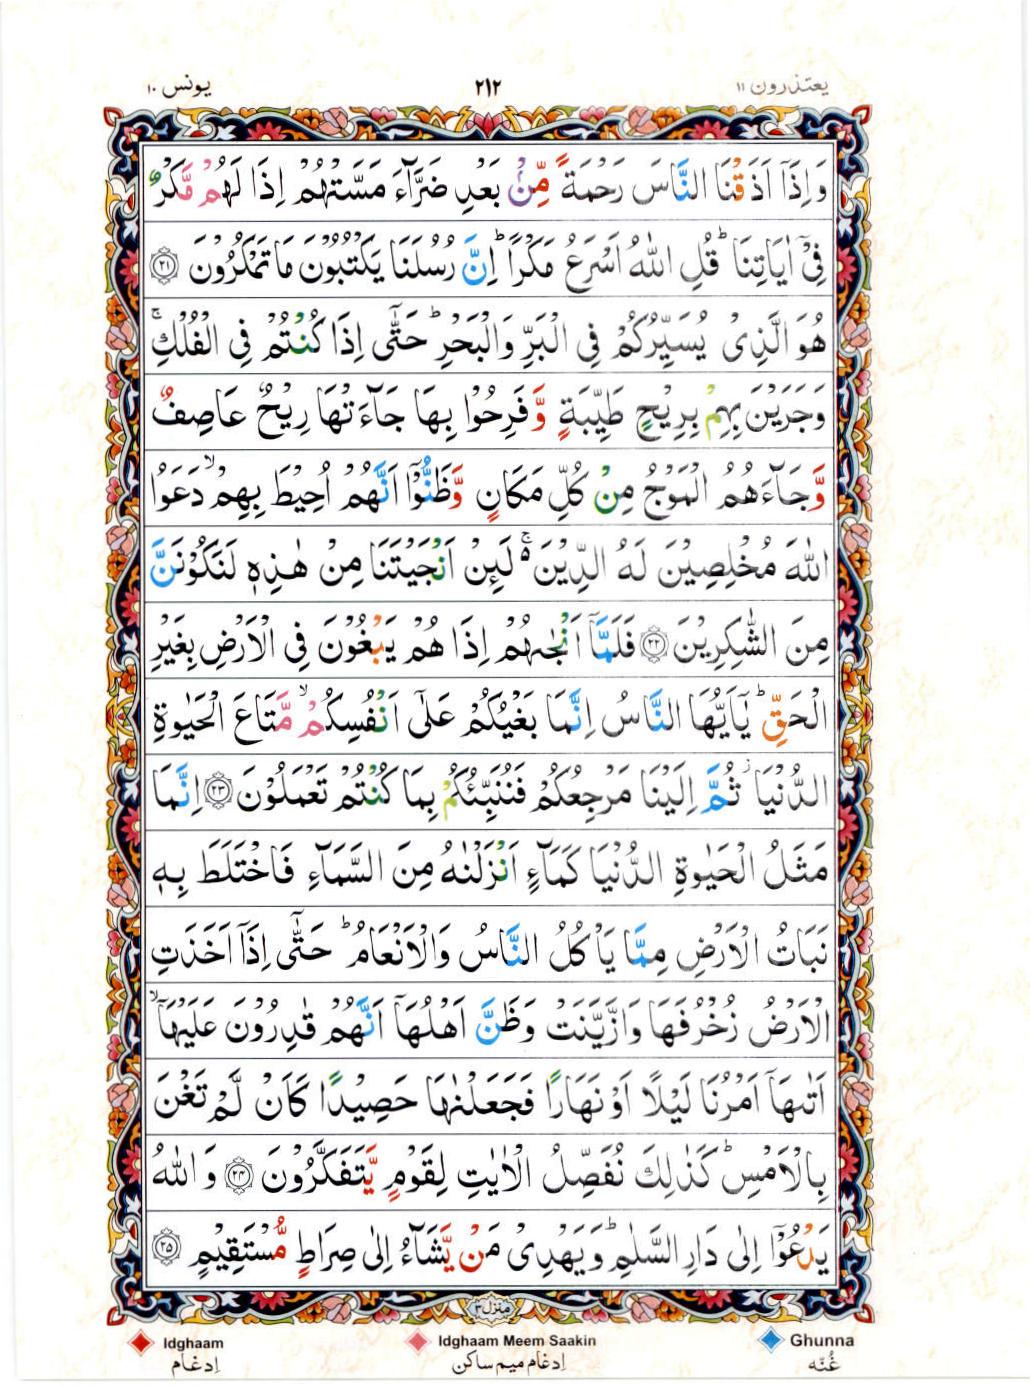 يعتذرون ١١
٢١٢
يونس ١٠
وَاِذَآ اَذَقْنَا النَّاسَ رَحْمَةً مِّنْۢ بَعْدِ ضَرَّآءَ مَسَّتْهُمْ اِذَا لَهُمْ مَّكْرٌ
فِيْٓ اٰيَاتِنَا ؕ قُلِ اللّٰهُ اَسْرَعُ مَكْرًا ؕ اِنَّ رُسُلَنَا يَكْتُبُوْنَ مَا تَمْكُرُوْنَ ﴿٢١﴾
هُوَ الَّذِيْ يُسَيِّرُكُمْ فِي الْبَرِّ وَالْبَحْرِ ؕ حَتّٰٓى اِذَا كُنْتُمْ فِي الْفُلْكِ ۚ
وَجَرَيْنَ بِهِمْ بِرِيْحٍ طَيِّبَةٍ وَّفَرِحُوْا بِهَا جَآءَتْهَا رِيْحٌ عَاصِفٌ
وَّجَآءَهُمُ الْمَوْجُ مِنْ كُلِّ مَكَانٍ وَّظَنُّوْٓا اَنَّهُمْ اُحِيْطَ بِهِمْ ۙ دَعَوُا
اللّٰهَ مُخْلِصِيْنَ لَهُ الدِّيْنَ ۚ۬ لَئِنْ اَنْجَيْتَنَا مِنْ هٰذِهٖ لَنَكُوْنَنَّ
مِنَ الشّٰكِرِيْنَ ﴿٢٢﴾ فَلَمَّآ اَنْجٰىهُمْ اِذَا هُمْ يَبْغُوْنَ فِي الْاَرْضِ بِغَيْرِ
الْحَقِّ ؕ يٰٓاَيُّهَا النَّاسُ اِنَّمَا بَغْيُكُمْ عَلٰٓى اَنْفُسِكُمْ ۙ مَّتَاعَ الْحَيٰوةِ
الدُّنْيَا ؗ ثُمَّ اِلَيْنَا مَرْجِعُكُمْ فَنُنَبِّئُكُمْ بِمَا كُنْتُمْ تَعْمَلُوْنَ ﴿٢٣﴾ اِنَّمَا
مَثَلُ الْحَيٰوةِ الدُّنْيَا كَمَآءٍ اَنْزَلْنٰهُ مِنَ السَّمَآءِ فَاخْتَلَطَ بِهٖ
نَبَاتُ الْاَرْضِ مِمَّا يَاْكُلُ النَّاسُ وَالْاَنْعَامُ ؕ حَتّٰٓى اِذَآ اَخَذَتِ
الْاَرْضُ زُخْرُفَهَا وَازَّيَّنَتْ وَظَنَّ اَهْلُهَآ اَنَّهُمْ قٰدِرُوْنَ عَلَيْهَآ ۙ
اَتٰىهَآ اَمْرُنَا لَيْلًا اَوْ نَهَارًا فَجَعَلْنٰهَا حَصِيْدًا كَاَنْ لَّمْ تَغْنَ
بِالْاَمْسِ ؕ كَذٰلِكَ نُفَصِّلُ الْاٰيٰتِ لِقَوْمٍ يَّتَفَكَّرُوْنَ ﴿٢٤﴾ وَاللّٰهُ
يَدْعُوْٓا اِلٰى دَارِ السَّلٰمِ ؕ وَيَهْدِيْ مَنْ يَّشَآءُ اِلٰى صِرَاطٍ مُّسْتَقِيْمٍ ﴿٢٥﴾
منزل ٣
Idghaam
Idghaam Meem Saakin
Ghunna
اِدغام
اِدغام میم ساکن
غُنّہ